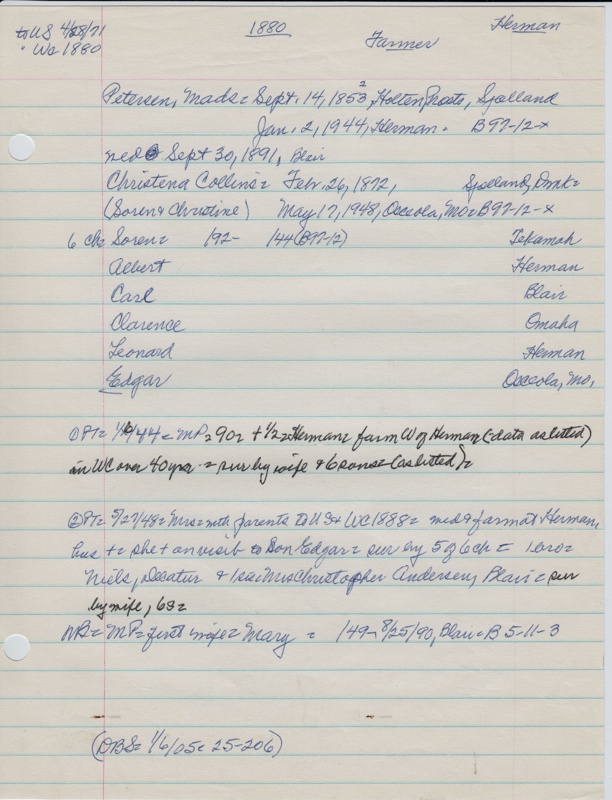 to US 4/28/71 1880 Herman
" WC 1880 Farmer
Petersen, Mads = Sept. 14, 1853, 2 Holten, Prasto, Sjolland
Jan. 2, 1944, Herman = B97-12-x
med Sept 30, 1891, Blair
Christena Collins = Feb. 26, 1872, Sjolland, Dmk=
(Soren & Christine) May 17, 1948, Osceola, Mo = B97-12-x
6 ch= Soren = 192- 144 (B97-12) Tekamah
Albert Herman
Carl Blair
Clarence Omaha
Leonard Herman
Edgar Osceola, Mo.
① PT= 1/6/44 = MP = 90 = + 1/2 = Herman = farm W of Herman (-data as listed)
in WC over 40 yrs = sur by wife & 6 sons = (as listed) =
② PT= 5/27/48 = Mrs = with parents to US & WC 1888 = med & farm at Herman,
hus + = she + on visit to Son Edgar = sur by 5 of 6 ch = 1 bro =
Niels, Decatur & 1 sis Mrs Christopher Andersen, Blair = sur
by wife, 6s =
NB = MP = first wife = Mary = 149- 8/25/90, Blair = B5-11-3
(DBS = 1/6/05 = 25-206)